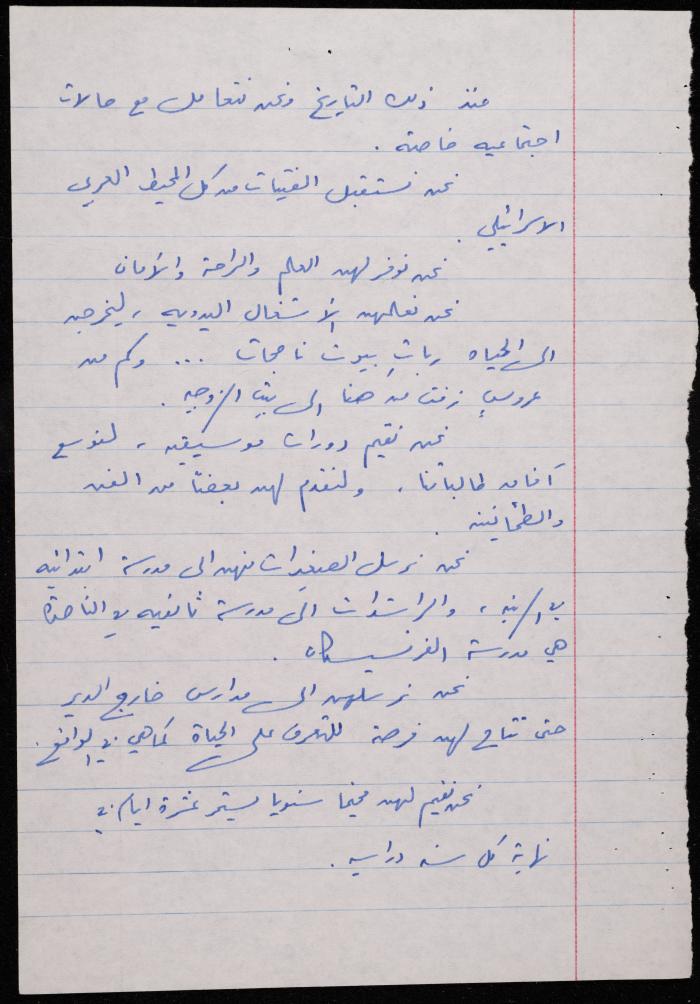 منذ ذلك التاريخ ونحن نتعامل مع حالات
اجتماعيه خاصة .
نحن نستقبل الفتيات من كل المحيط العربي
الاسرائيلي .
نحن نوفر لهن العلم والراحة والأمان
نحن نعلمهن الأشغال اليدويه ، ليخرجن
الى الحياه ربات بيوت ناجحات ... وكم من
عروسٍ زفت من هنا الى بيت الزوجيه .
نحن نقيم دورات موسيقيه ، لنوسع
آفاق طالباتنا ، ولنقدم لهن بعضًا من الفن
والطمأنينه .
نحن نرسل الصغيرات منهن الى مدرسة ابتدائيه
في الرينه ، والراشدات الى مدرسة ثانويه في الناصرة
هي مدرسة الفرنسيسكان .
نحن نرسلهن الى مدارس خارج الدير
حتى تتاح لهن فرصة للتعرف على الحياة كما هي في الواقع .
نحن نقيم لهن مخيما سنويا يستمر عشرة ايام في
نهاية كل سنه دراسيه .